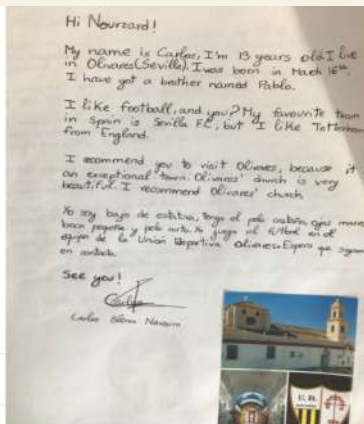 Hi Nourzard!
My name is Carlos, I'm 13 years old I live
in Olivares (Seville). I was born in March 16th.
I have got a brother named Pablo.
I like football, and you? My favourite team
in Spain is Sevilla F.C, but I like Tottenham
from England.
I recommend you to visit Olivares, because it
an exceptional town. Olivares' church is very
beautiful. I recommend Olivares' church
Yo soy bajo de estatura, tengo el pelo castaño, ojos
boca pequeña y pelo corto. Yo juego al fútbol en el
equipo de la Unión Deportiva Olivares. Espero que sigamos
en contacto.
See you!
Carlos Navarro
U.D.